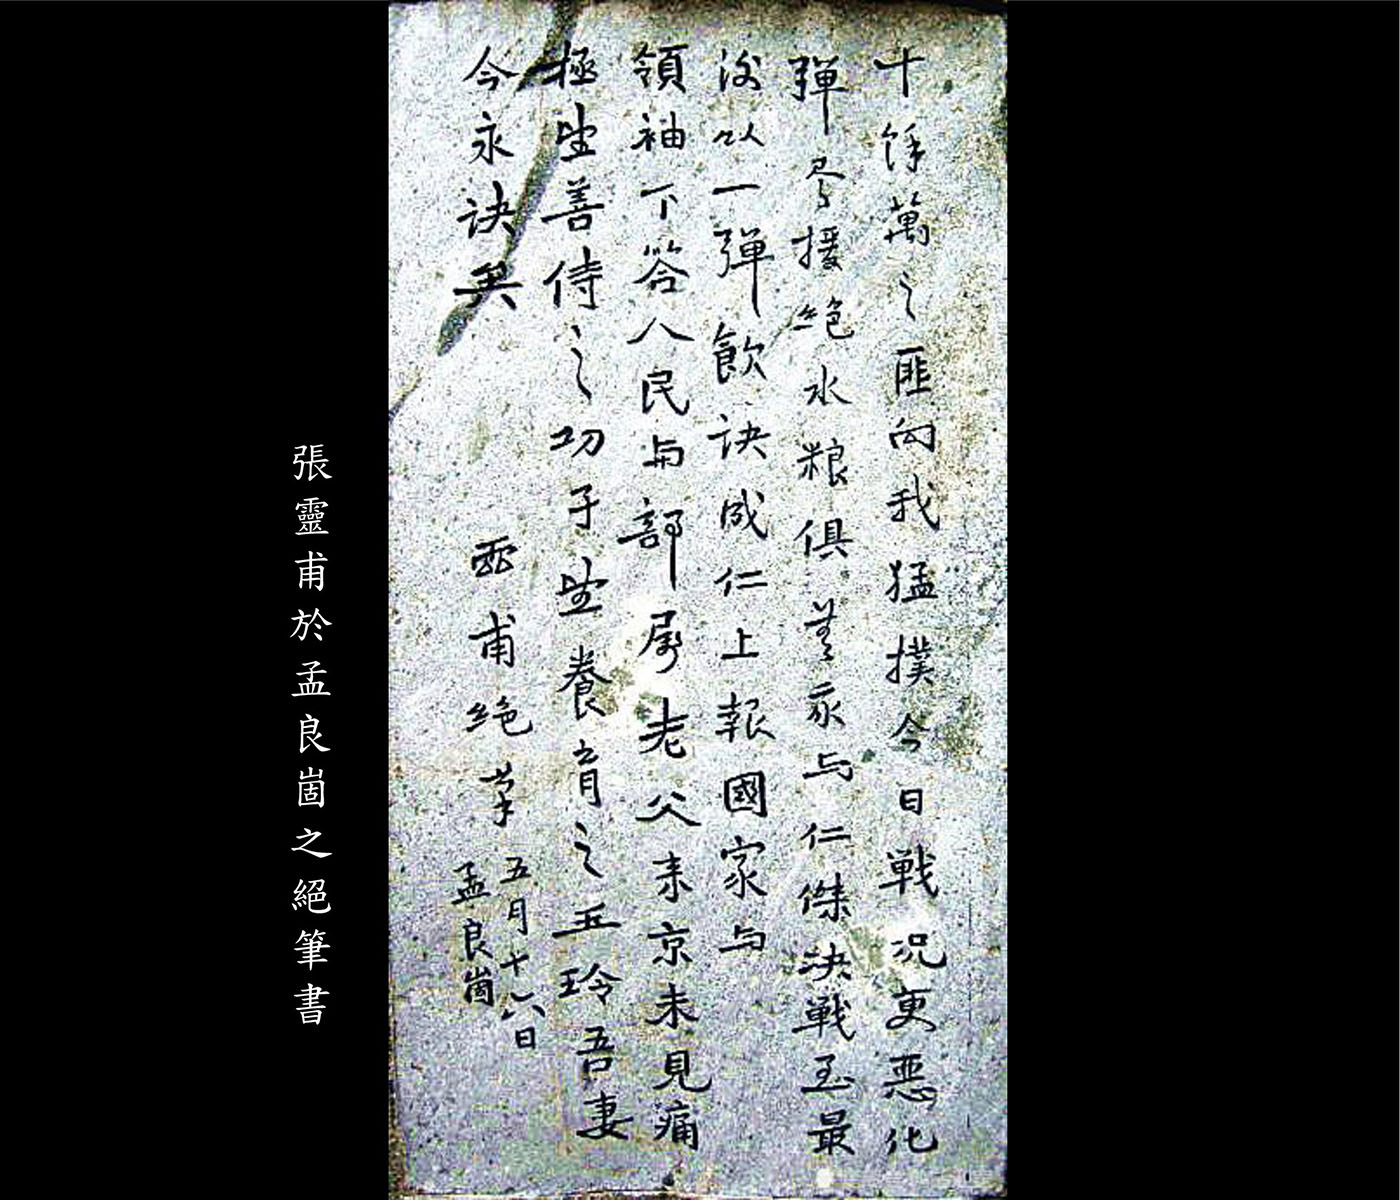 十餘萬之匪向我猛撲今日戦况更悪化
彈盡援絶水粮俱無我与仁傑決戦至最
後以一彈飲訣成仁上報國家与
領袖下答人民与部屬老父来京未見痛
極望善待之幼子望養育之玉玲吾妻
今永訣矣
靈甫絶筆
五月十六日
孟良崮
張靈甫於孟良崮之絕筆書